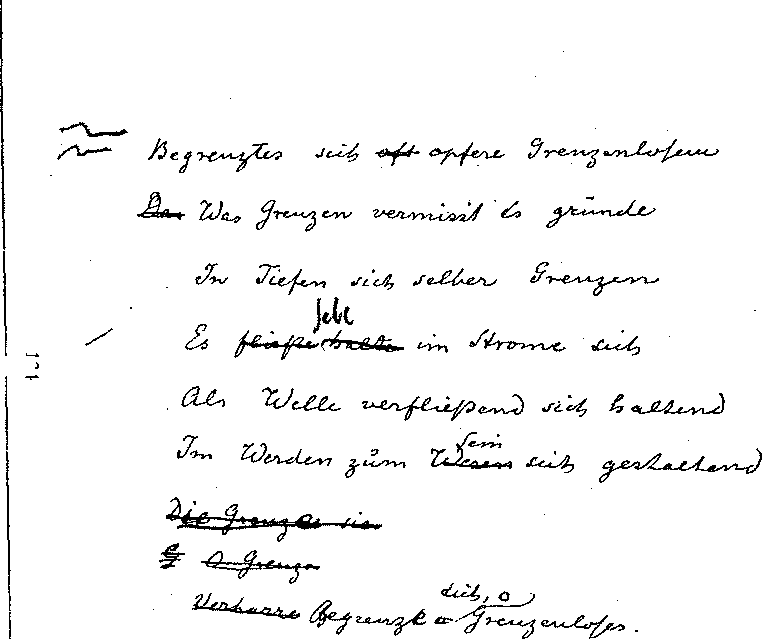 Begrenztes sich oft opfere Grenzenlosem
Da Was Grenzen vermisst Es gründe
In Tiefen sich selber Grenzen
hebe
Es fließe halte im Strome sich
Als Welle verfließend sich haltend
Sein
Im Werden zum Wesen sich gestaltend
Die Grenze sie
O Grenze
dich, o
Verharre Begrenze o Grenzenloses.
171